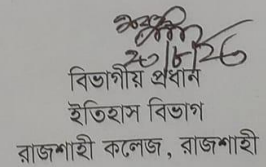 ২০/৮/২৫
বিভাগীয় প্রধান
ইতিহাস বিভাগ
রাজশাহী কলেজ, রাজশাহী